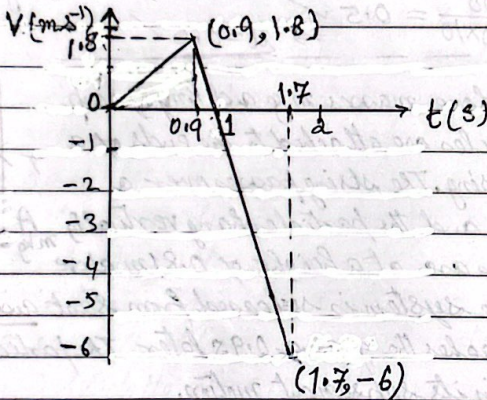 V(m.s⁻¹)
1.8
(0.9, 1.8)
0
0.9
1
1.7
2
t(s)
-1
-2
-3
-4
-5
-6
(1.7, -6)